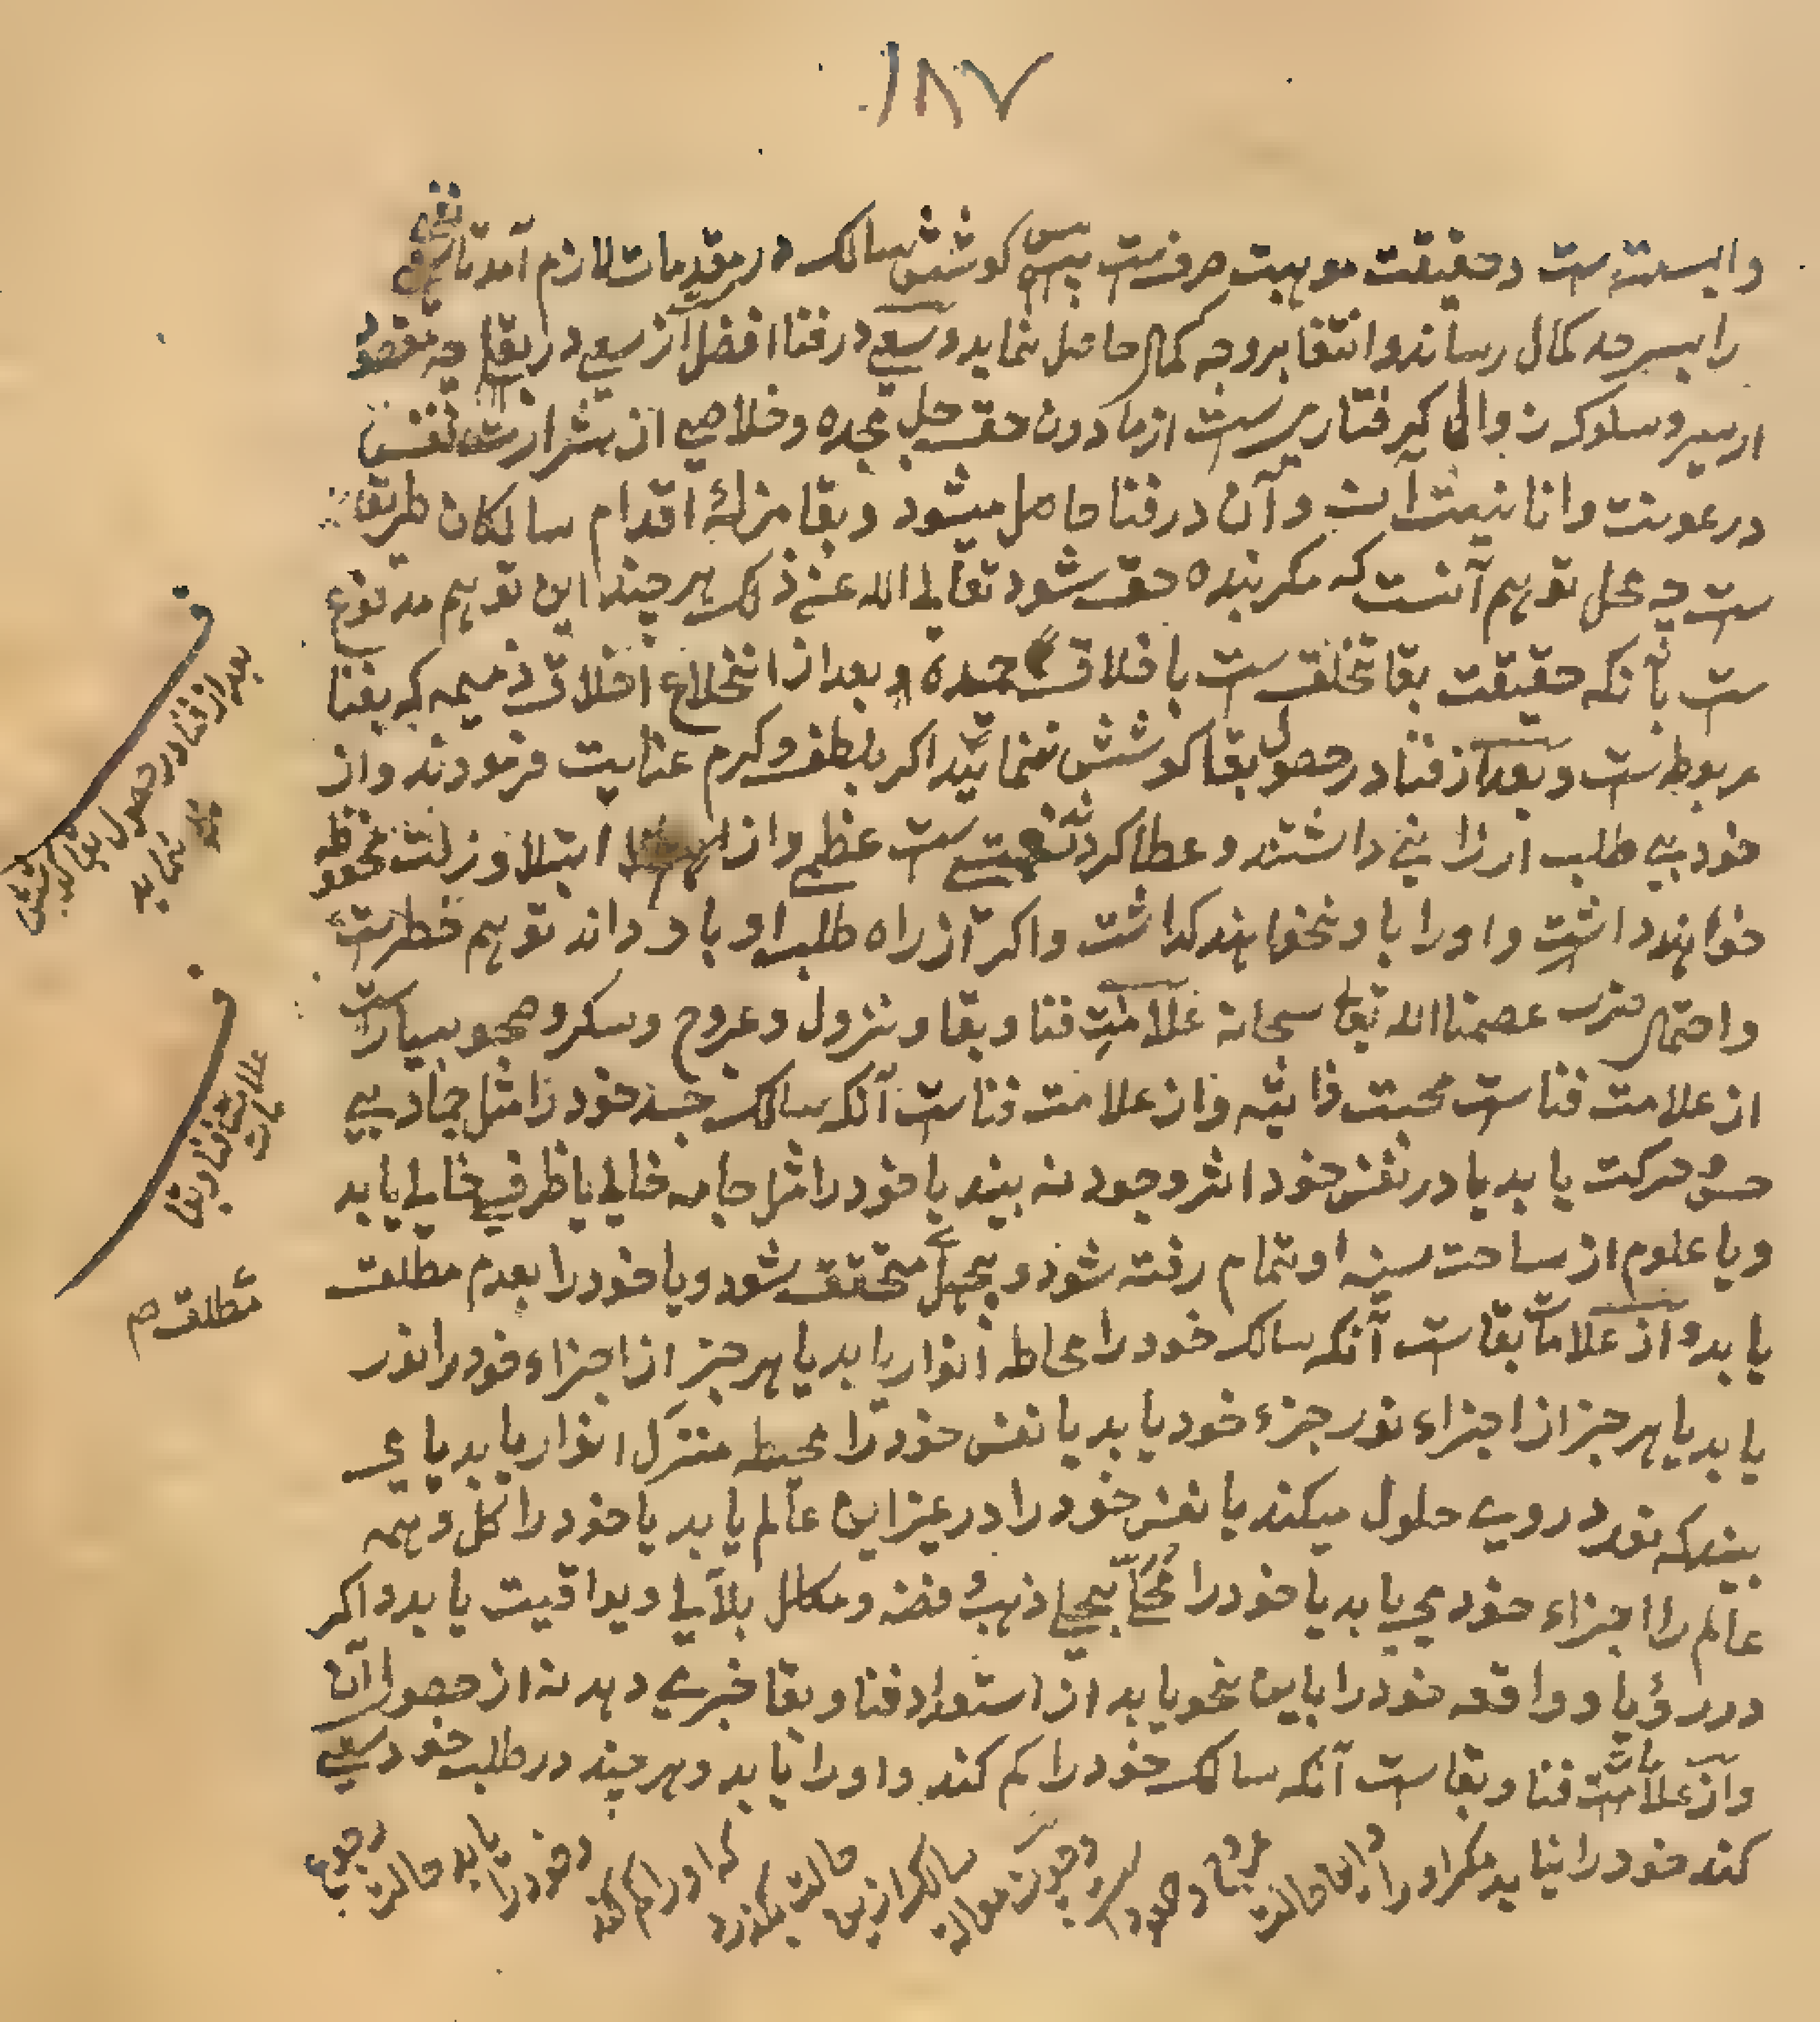 ۱۸۷
وابسته است در حقیقت موهبت صرفست پس کوشش سالک در مقدمات لازم آمد تا نفی
را بسر حد کمال رساند و انتفا بر وجه کمال حاصل نماید و سعی در فنا افضل از سعی در بقا چه مقصود
از سیر و سلوک زوال گرفتاریست از مادون حق جل مجده و خلاصی از شرارت نفس
و رعونت و انانیت آن و آن در فنا حاصل میشود و بقا مزلهٔ اقدام سالکان طریقه
ست چه محل توهم آنست که مکر بنده حق شود تعالی الله عن ذلک هر چند این توهم مدفوع
ست بآنکه حقیقت بقا تخلق ست باخلاق حمیده و بعد از انخلاع اخلاق ذمیمه که بفنا
مربوط ست و بعد از فنا در حصول بقا کوشش ننماید اکر بلطف و کرم عنایت فرمودند و از
خود بی طلب ارزانی داشتند و عطا کردند نعمتے ست عظمی و از ابتلا و زلت محفوظ
خواهند داشت و او را باو نخواهند کذاشت و اکر از راه طلب او باو داند توهم خطر ست
و احتمال ضرر عصمنا الله تعا سبحانه علامت فنا و بقا و نزول و عروج و سکر و صحو بسیار ست
از علامت فنا ست محبت ذاتیه و از علامت فنا ست آنکه سالک جسد خود را مثل جماد بی
حس و حرکت یابد یا در نفس خود اثر وجود نه بیند یا خود را مثل جامه خالی یا ظرفی خالی یابد
و یا علوم از ساحت سینه او بتمام رفته شود و بجهل متحقق شود و یا خود را بعدم مطلق
یابد و از علامات بقا ست آنکه سالک خود را محاطه انوار یابد یا هر جز از اجزاء خود را نور
یابد یا هر جز از اجزاء نور جزء خود یابد یا نفس خود را محیط منتزل انوار یابد یا می
بیند که نور در وی حلول میکند یا نفس خود را در غیر این عالم یابد یا خود را کل و همه
عالم را اجزاء خود می یابد یا خود را محلّا بحلی ذهب و فضه و مکلل بلآلی و یواقیت یابد و اکر
در رؤیا و واقعه خود را باین نحو یابد از استعداد فنا و بقا خبری دهد نه از حصول آن
و از علامت فنا و بقا ست آنکه سالک خود را کم کند و او را یابد و هر چند در طلب خود سعی
کند خود را نیابد مکر او را و این حالت عروج و چون سالک ازین حالت بگذرد که او را کم کند و خود را یابد حالت رجوع
بعد از فنا در حصول بقا کوشش
ننماید
علامت فنا و بقا
مطلق ص